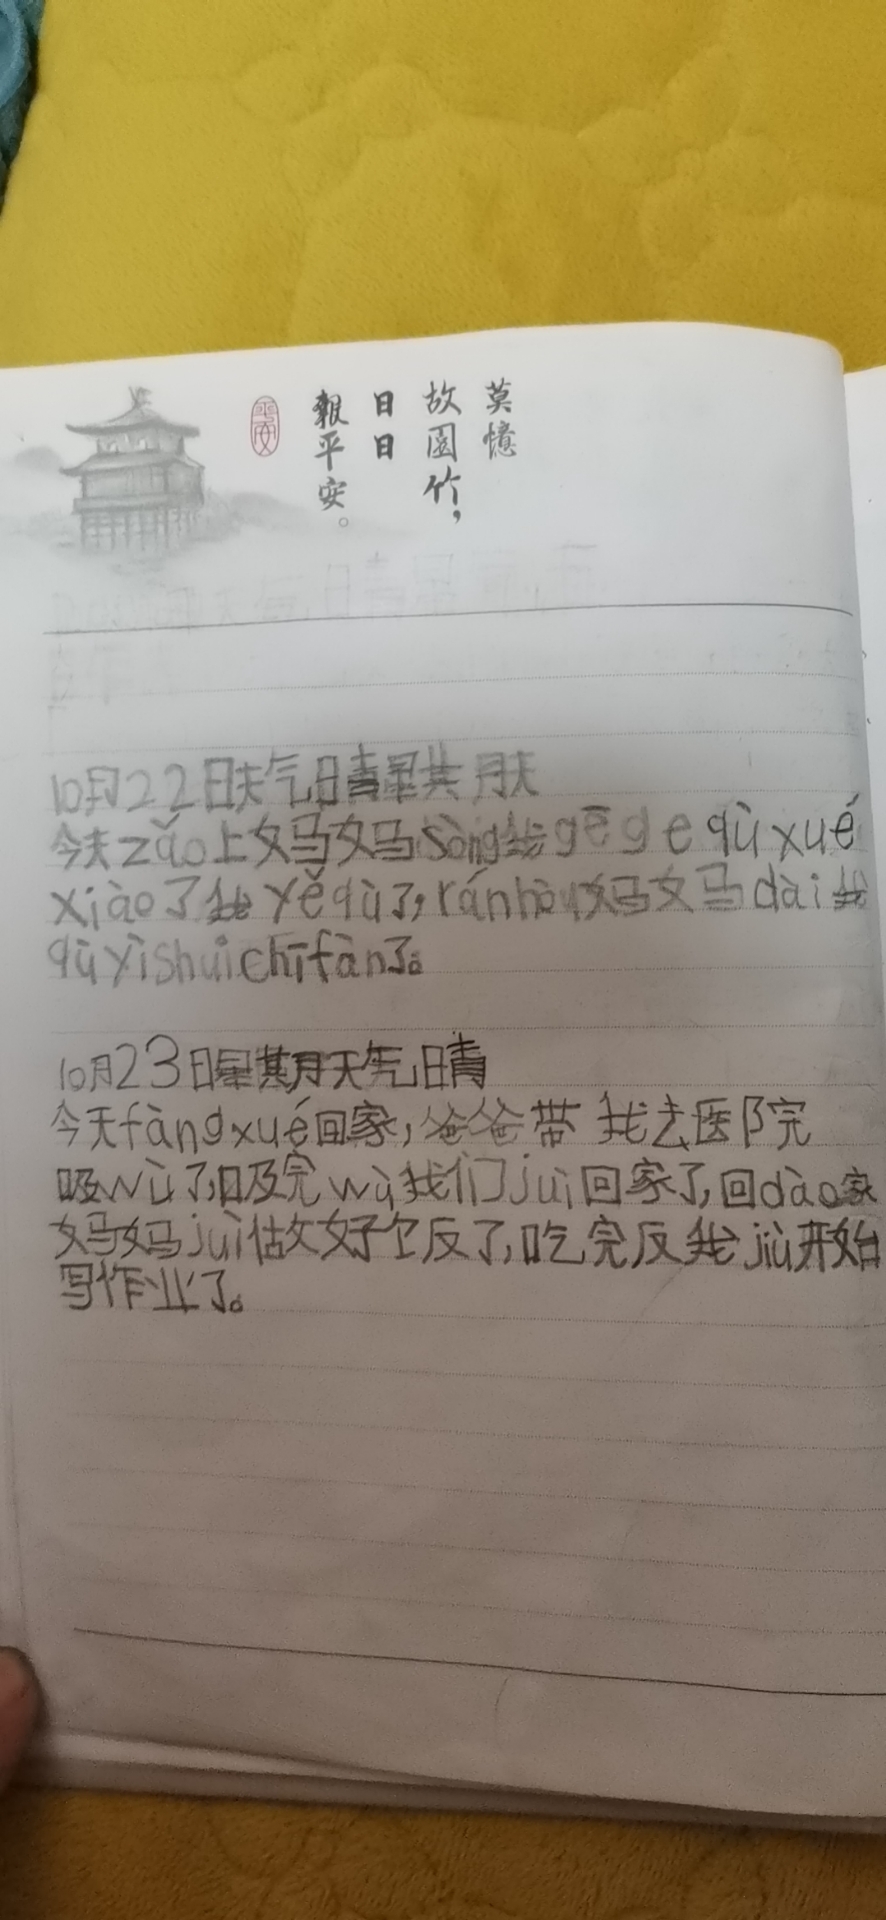 莫憶
故園竹，
日日
報平安。
平安
10月22日天气日青星其月天
今天zǎo上妈妈sòng我gēge qù xué
xiào了我yěqù了，ránhòu妈妈dài我
qùyìshuǐchīfàn了。
10月23日星期月天气晴
今天fàngxué回家，爸爸带我去医院
吸wù了，吸完wù我们juì回家了，回dào家
妈妈juì估攵好饣反了，吃完反我jiù开始
写作业了。